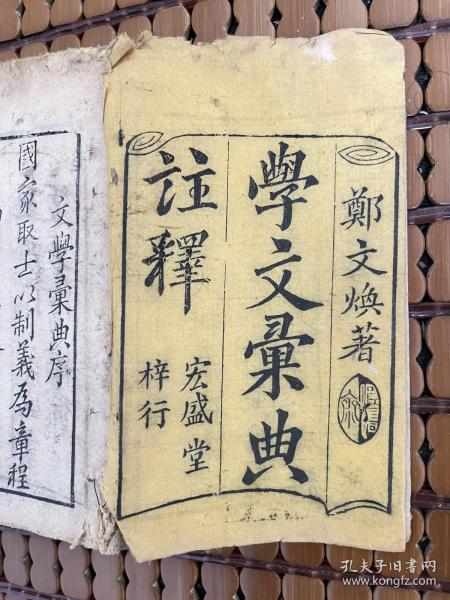 鄭文煥著
學文彙典
註釋
宏盛堂
梓行
文學彙典序
國家取士以制義爲章程
孔夫子旧书网
www.kongfz.com